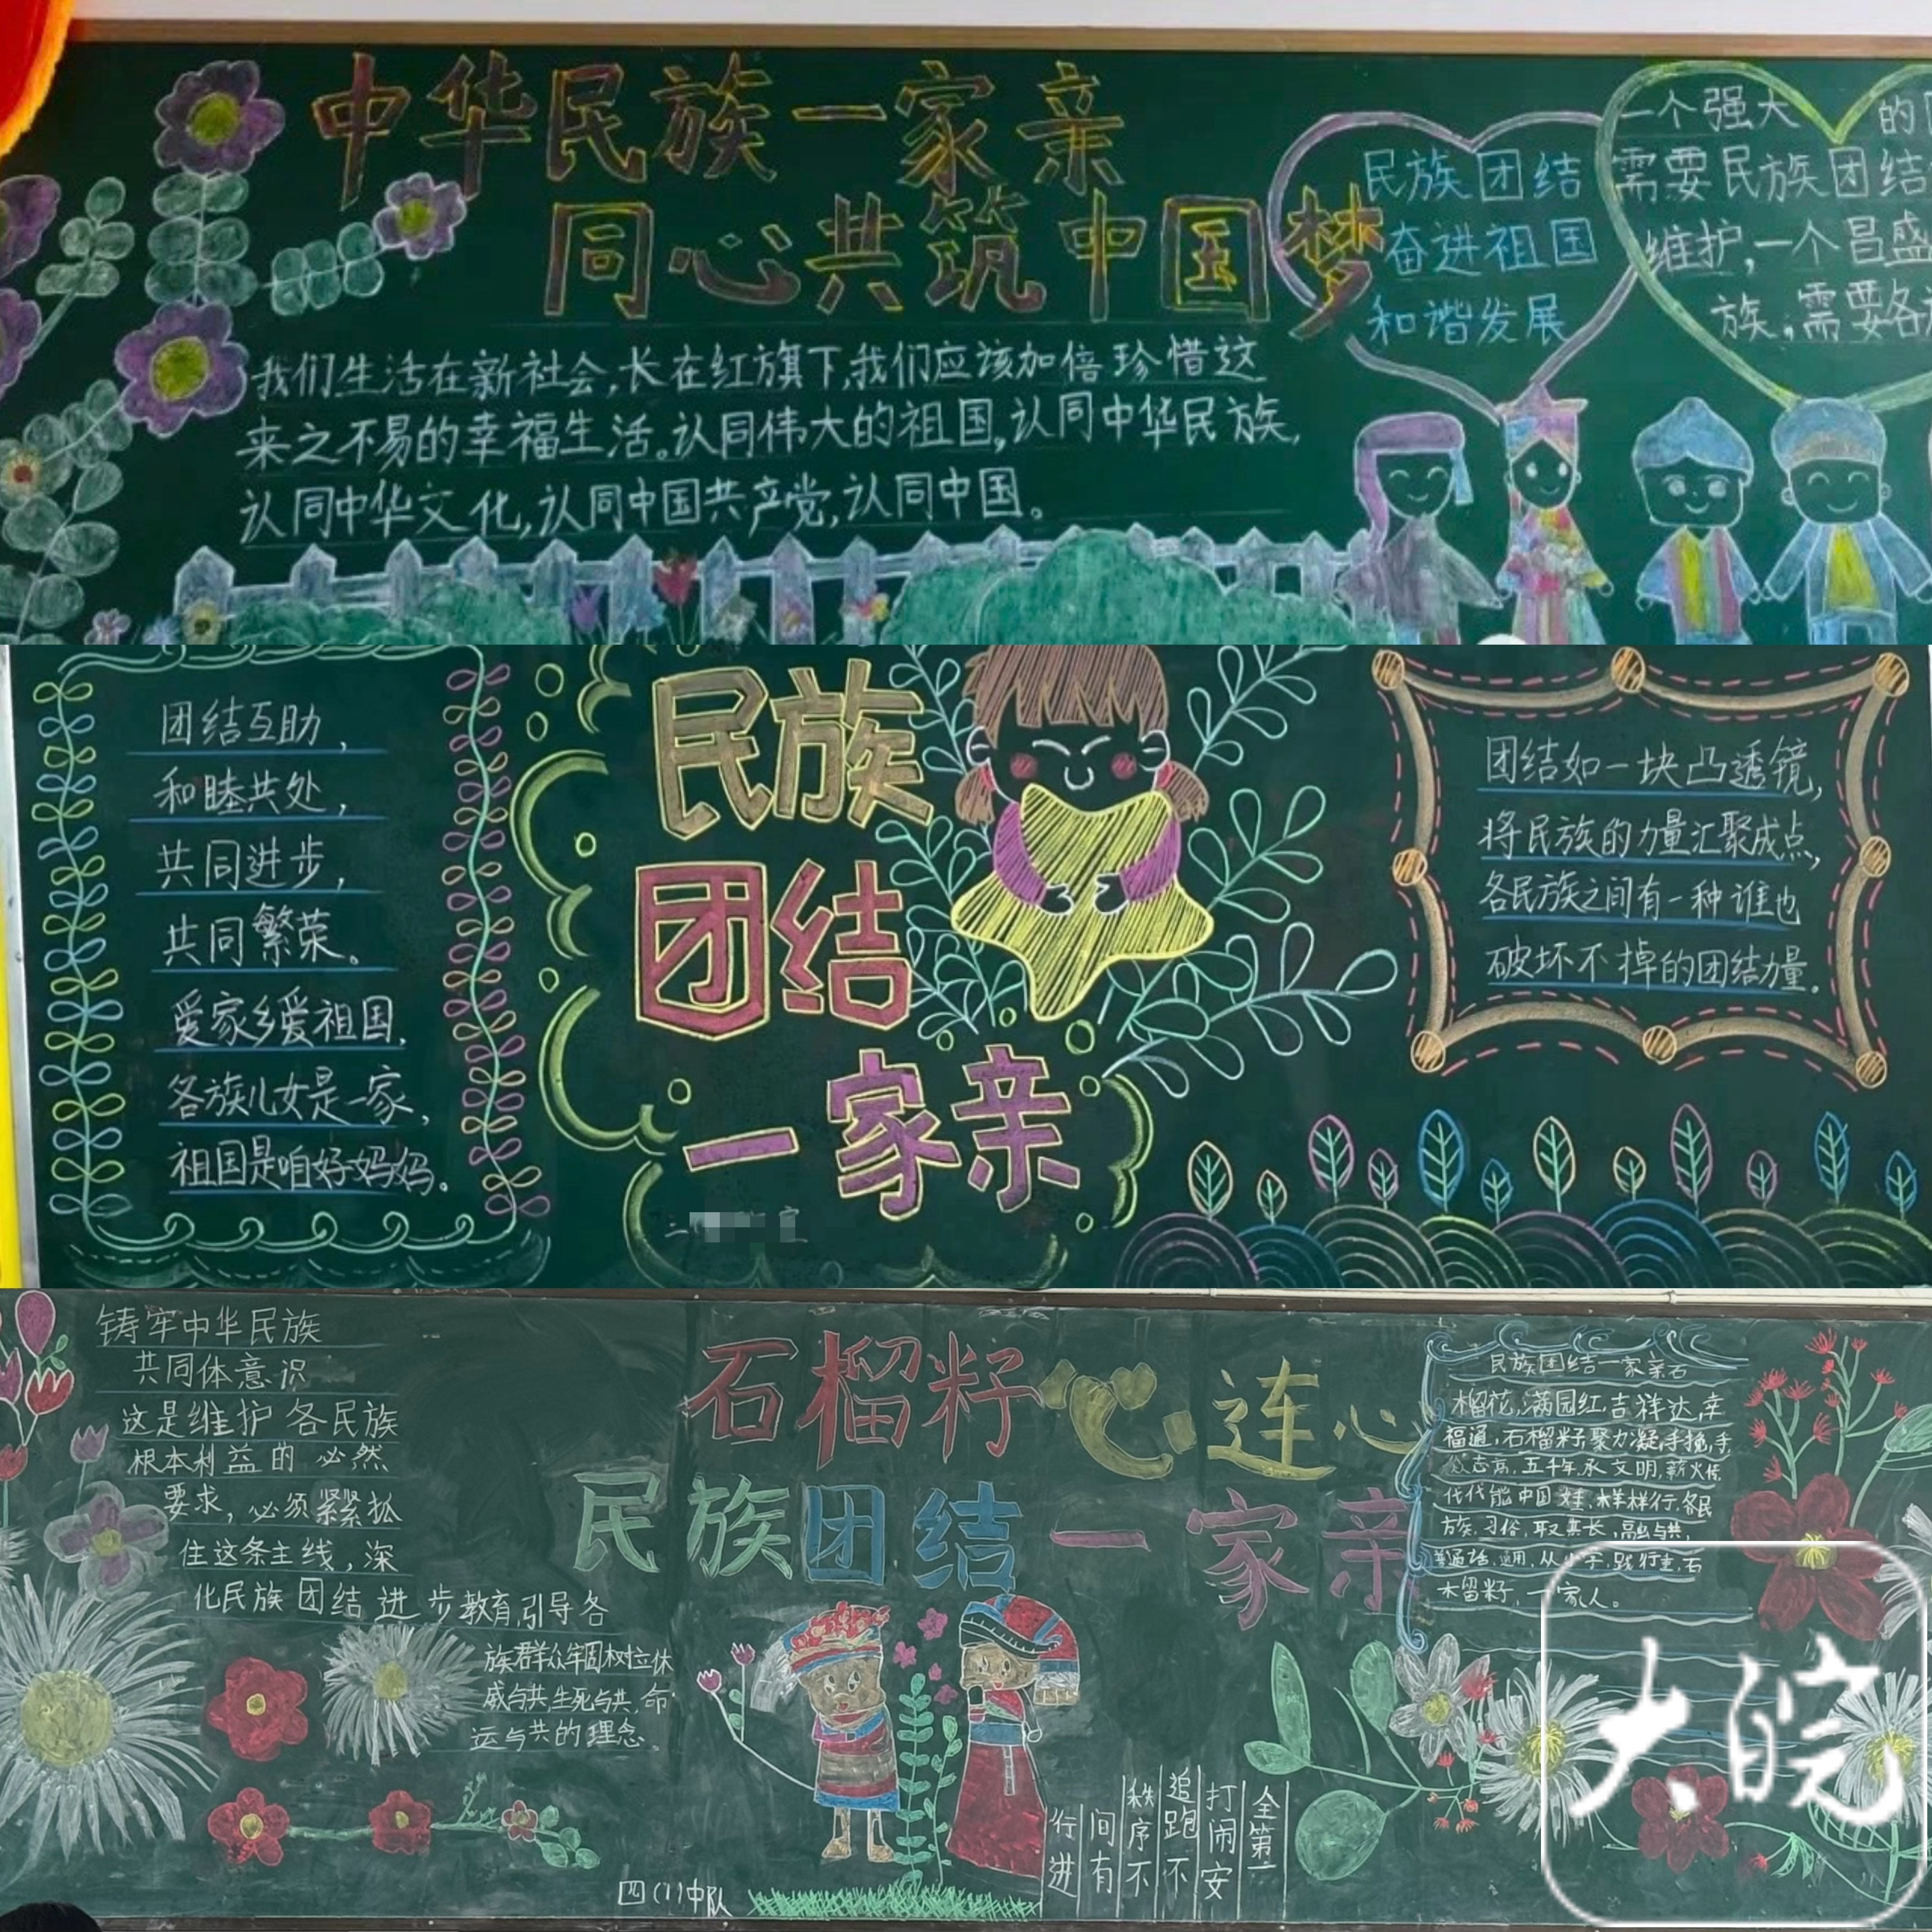 中华民族一家亲
同心共筑中国梦
我们生活在新社会,长在红旗下,我们应该加倍珍惜这
来之不易的幸福生活。认同伟大的祖国,认同中华民族,
认同中华文化,认同中国共产党,认同中国。
民族团结
奋进祖国
和谐发展
一个强大 的
需要民族团结
维护,一个昌盛
族,需要各
团结互助,
和睦共处,
共同进步,
共同繁荣。
爱家乡爱祖国,
各族儿女是一家,
祖国是咱好妈妈。
民族
团结
一家亲
团结如一块凸透镜,
将民族的力量汇聚成点,
各民族之间有一种谁也
破坏不掉的团结力量。
铸牢中华民族
共同体意识
这是维护各民族
根本利益的必然
要求,必须紧紧抓
住这条主线,深
化民族团结进步教育,引导各
族群众牢固树立休
戚与共,生死与共,命
运与共的理念。
石榴籽心连心
民族团结一家亲
民族团结一家亲石
榴花,满园红,吉祥达,幸
福通,石榴籽,聚力凝,手挽,手
志高,五千年,承文明,薪火传
代代能中国娃,样样行,各民
族,习俗,取其长,融与共,
普通话,通用,从小学,践行重,石
木留籽,一家人。
行进
间有
秩序不
追跑不
打闹安
全第一
四(1)中队
大皖